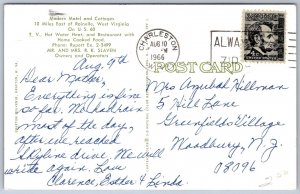 Modern Motel and Cottages
10 Miles East of Rainelle, West Virginia
On U.S. 60
T. V., Hot Water Heat, and Restaurant with
Home Cooked Food.
Phone: Rupert Ex. 2-3499
MR. AND MRS. R. E. SLAVEN
Owners and Operators
Aug 9th
Dear Mother,
Everything is fine
so far. Had rain
most of the day,
after we reached
Skyline drive. We will
write again. Love
Clarence, Esther & Linda.
CHARLESTON
AUG 10
PM
1966
ALWA
POST CARD
Mrs Hillman
5 Hill Lane
Greenfields Village
Woodbury, N.J.
08096